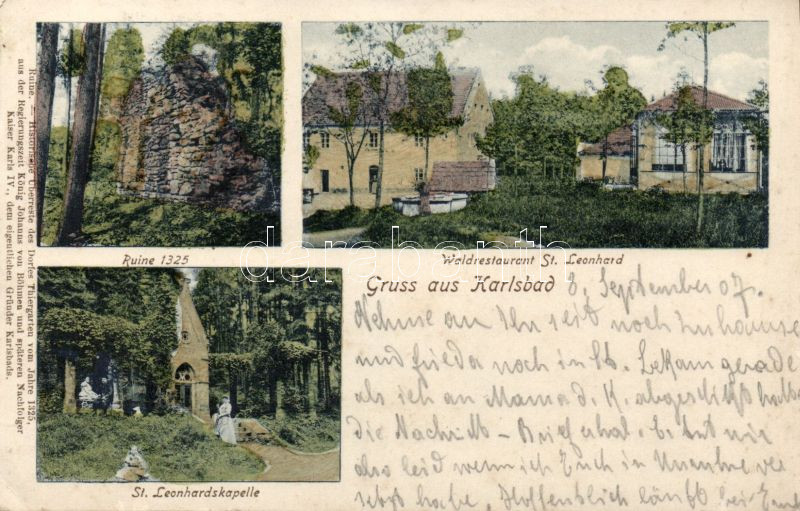 Ruine. — Historische Überreste des Dorfes Thiergarten vom Jahre 1325,
aus der Regierungszeit König Johanns von Böhmen und späteren Nachfolger
Kaiser Karls IV., dem eigentlichen Gründer Karlsbads.
Ruine 1325
Waldrestaurant St. Leonhard
darabanth
.com
Gruss aus Karlsbad
St. Leonhardskapelle
3. September 07.
Nehme an Ihr seit noch zuhause
und frieda noch in St. Bekam gerade
als ich an Mama d. K. abgeschickt hatte
die Nachricht - Brief erhal. E. tut mir
also leid wenn ich Euch in Unruhe ver
setzt habe. Hoffentlich läuft bei